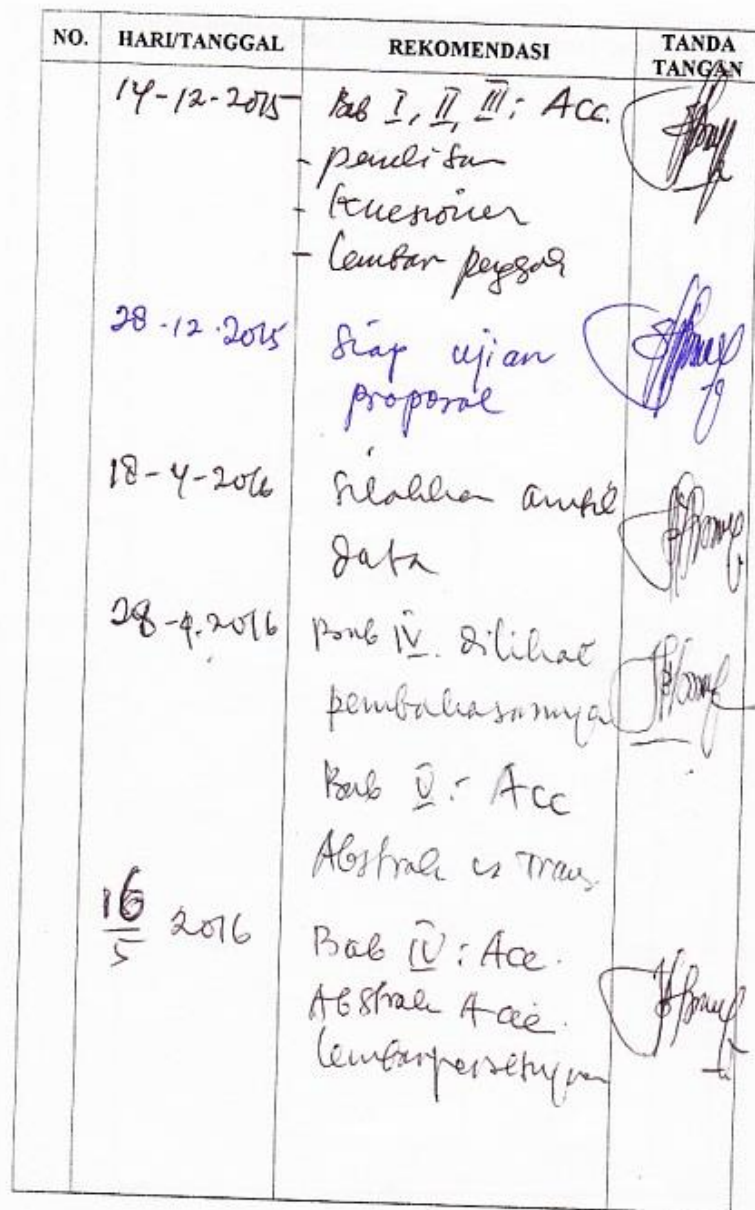 NO. HARI/TANGGAL REKOMENDASI TANDA TANGAN
14-12-2015 Bab I, II, III: Acc.
- penulisan
- kuesioner
- lembar
28-12-2015 Siap ujian
proposal
18-4-2016 Silahkan ambil
data
28-4-2016 Bab IV. dilihat
pembahasannya
Bab V: Acc
Abstrak
16/5 2016 Bab IV: Acc.
Abstrak Acc.
lembar persetujuan